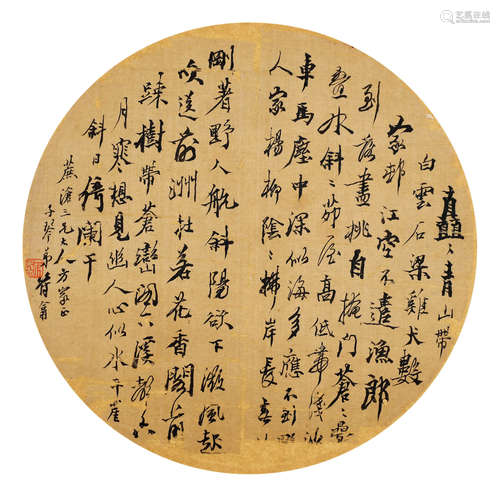 矗矗青山帶
白雲石梁雞犬數
家邨江空不遣漁郎
到落盡桃自掩門蒼蒼疊
疊水斜斜茆屋高低淺沙
車馬塵中深似海多應不到野
人家楊柳陰陰拂岸長春
剛著野人航斜陽欲下微風起
吹送前洲杜若花香閣前
疎樹帶蒼巒閣下溪聲六
月寒想見幽人心似水千崖
斜日倚闌干
蕉滄三兄大人方家正
子琴弟符翁